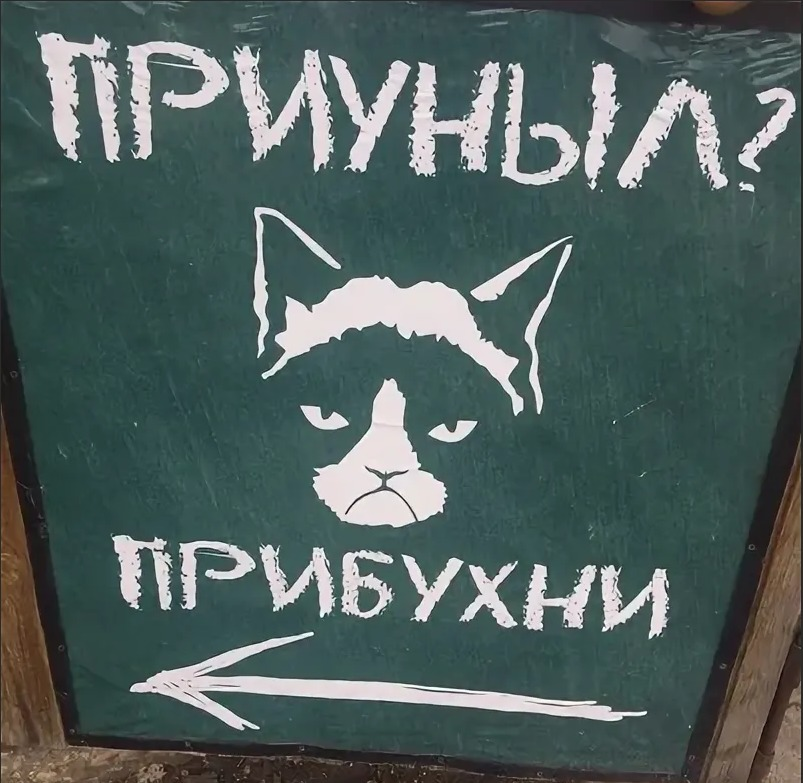 ПРИУНЫЛ?
ПРИБУХНИ